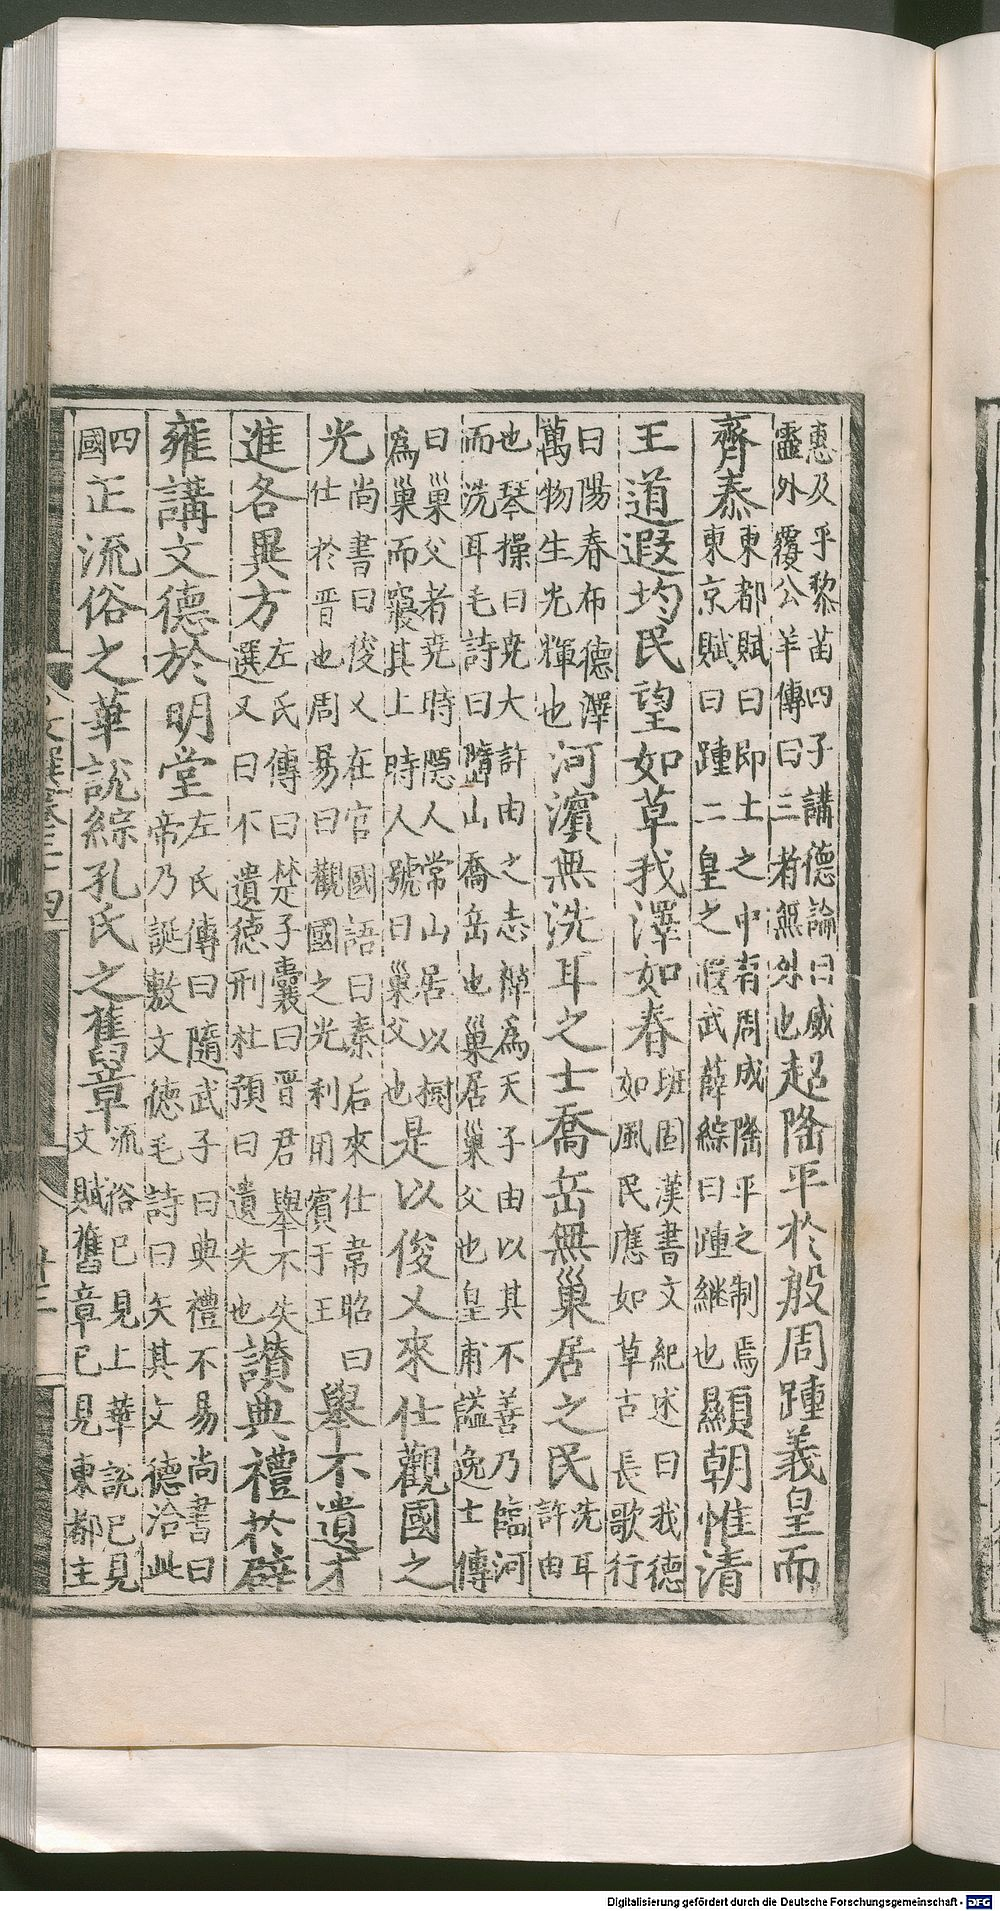 惠及乎黎苗四子講德論曰威
靈外覆公羊傳曰王者無外也超隆平於殷周踵羲皇而
齊泰東都賦曰即土之中有周成隆平之制焉
東京賦曰踵二皇之遐武薛綜曰踵繼也顯朝惟清
王道遐均民望如草我澤如春班固漢書文紀述曰我德
如風民應如草古長歌行
曰陽春布德澤
萬物生光輝也河濱無洗耳之士喬岳無巢居之民洗耳
許由
也琴操曰堯大許由之志禪為天子由以其不善乃臨河
而洗耳毛詩曰墮山喬岳也巢居巢父也皇甫謐逸士傳
曰巢父者堯時隱人常山居以樹
為巢而寢其上時人號曰巢父也是以俊乂來仕觀國之
光尚書曰俊乂在官國語曰秦后來仕韋昭曰
仕於晉也周易曰觀國之光利用賓于王舉不遺才
進各異方左氏傳曰楚子囊曰晉君舉不失
選又曰不遺德刑杜預曰遺失也讚典禮於辟
雍講文德於明堂左氏傳曰隨武子曰典禮不易尚書曰
帝乃誕敷文德毛詩曰矢其文德洽此
四
國正流俗之華說綜孔氏之舊章流俗已見上華說已見
文賦舊章已見東都主
文選卷三十四
廿三
Digitalisierung gefördert durch die Deutsche Forschungsgemeinschaft - DFG